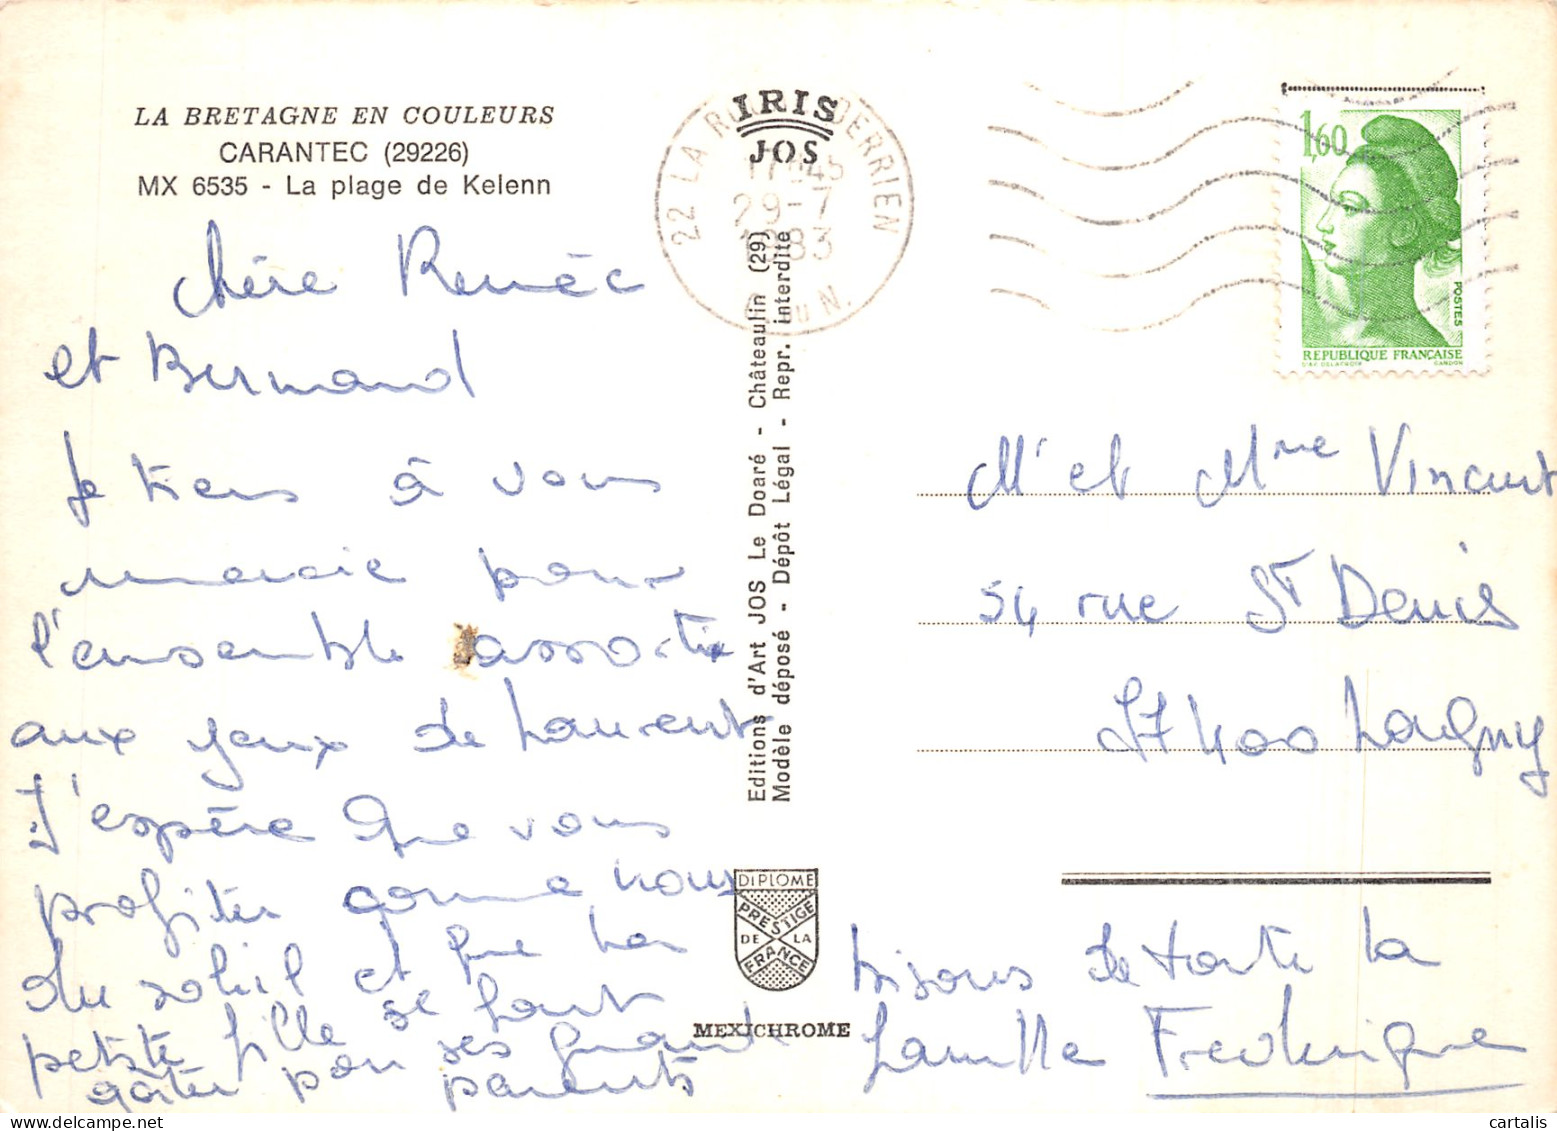 LA BRETAGNE EN COULEURS
CARANTEC (29226)
MX 6535 - La plage de Kelenn
chère Renée
et Bernard
Je tiens à vous
remercie pour
l'ensemble assortie
aux yeux de Laurent
J'espère que vous
profiter comme nous
du soleil et que la
petite fille se faut
gâter par ses grands
parents
IRIS
JOS
22 LA ROCHE DERRIEN
17H45
29-7
1983
C. du N.
Editions d'Art JOS Le Doaré - Châteaulin (29)
Modèle déposé - Dépôt Légal - Repr. interdite
DIPLOME
PRESTIGE
DE LA
FRANCE
MEXICHROME
1,60
POSTES
REPUBLIQUE FRANÇAISE
GANDON
Mr et Mme Vincent
54 rue St Denis
77400 Lagny
bisous de toute la
famille Frédérique
cartalis